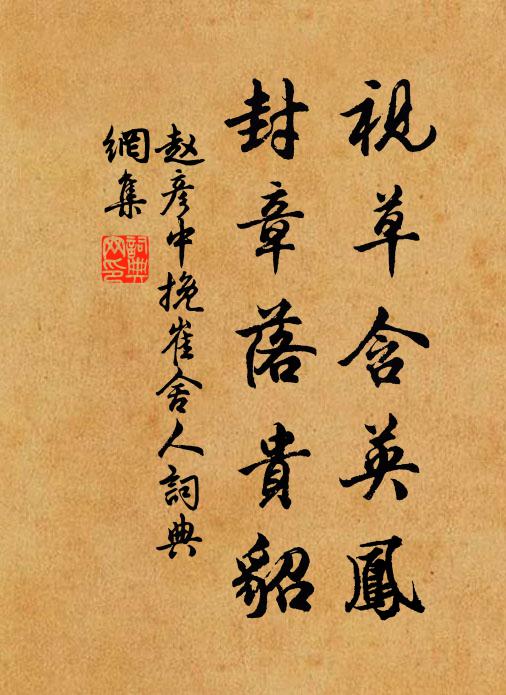 視草含英鳳
封章落貴貂
赵彥中挽崔舍人詞典
網集
詞典網印